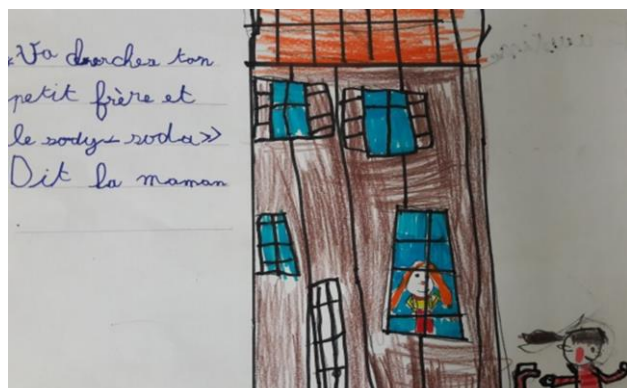 «Va cherches ton
petit frère et
le sody soda»
Dit la maman